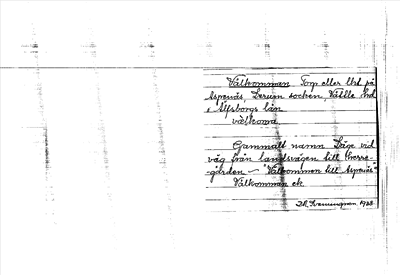 Välkomman Torp eller Ust på
Aspenäs, Lerum socken, Vättle hd
i Älfsborgs län.
vä̀lkoma
Gammalt namn Läge vid
väg från landsvägen till herre-
gården – "Välkommen till Aspenäs"
Välkomman ek
1928